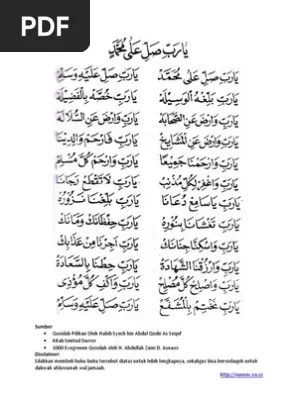 PDF
يَارَبِّ صَلِّ عَلَى مُحَمَّدْ
يَارَبِّ صَلِّ عَلَى مُحَمَّدْ يَارَبِّ صَلِّ عَلَيْهِ وَسَلِّمْ
يَارَبِّ بَلِّغْهُ الْوَسِيْلَهْ يَارَبِّ خُصَّهْ بِالْفَضِيْلَهْ
يَارَبِّ وَارْضَ عَنِ الصَّحَابَهْ يَارَبِّ وَارْضَ عَنِ السُّلَالَهْ
يَارَبِّ وَارْضَ عَنِ الْمَشَايِخْ يَارَبِّ فَارْحَمْ وَالِدِيْنَا
يَارَبِّ وَارْحَمْنَا جَمِيْعًا يَارَبِّ وَارْحَمْ كُلَّ مُسْلِمْ
يَارَبِّ وَاغْفِرْ لِكُلِّ مُذْنِبْ يَارَبِّ لَا تَقْطَعْ رَجَانَا
يَارَبِّ يَاسَامِعْ دُعَانَا يَارَبِّ بَلِّغْنَا نَزُوْرُهْ
يَارَبِّ تَغْشَانَا بِنُوْرِهْ يَارَبِّ حِفْظَانَكْ وَمَانَكْ
يَارَبِّ وَاسْكِنَّا جِنَانَكْ يَارَبِّ اَجِرْنَا مِنْ عَذَابِكْ
يَارَبِّ وَارْزُقْنَا الشَّهَادَةْ يَارَبِّ حِطْنَا بِالسَّعَادَةْ
يَارَبِّ وَاصْلِحْ كُلَّ مُصْلِحْ يَارَبِّ وَاكْفِ كُلَّ مُؤْذِيْ
يَارَبِّ نَخْتِمْ بِالْمُشَفَّعْ يَارَبِّ صَلِّ عَلَيْهِ وَسَلِّمْ
Sumber
• Qosidah Pilihan Oleh Habib Syech bin Abdul Qodir As Seqaf
• Kitab Simtud Duror
• 1000 Evegreeen Qosidah oleh H. Abdullah Zaini D. Asnawi
Disclaimer!
Silahkan membeli buku-buku tersebut diatas untuk lebih lengkapnya, sekaligus bisa berpartisipasi untuk
dakwah ahlussunah wal jamaah.